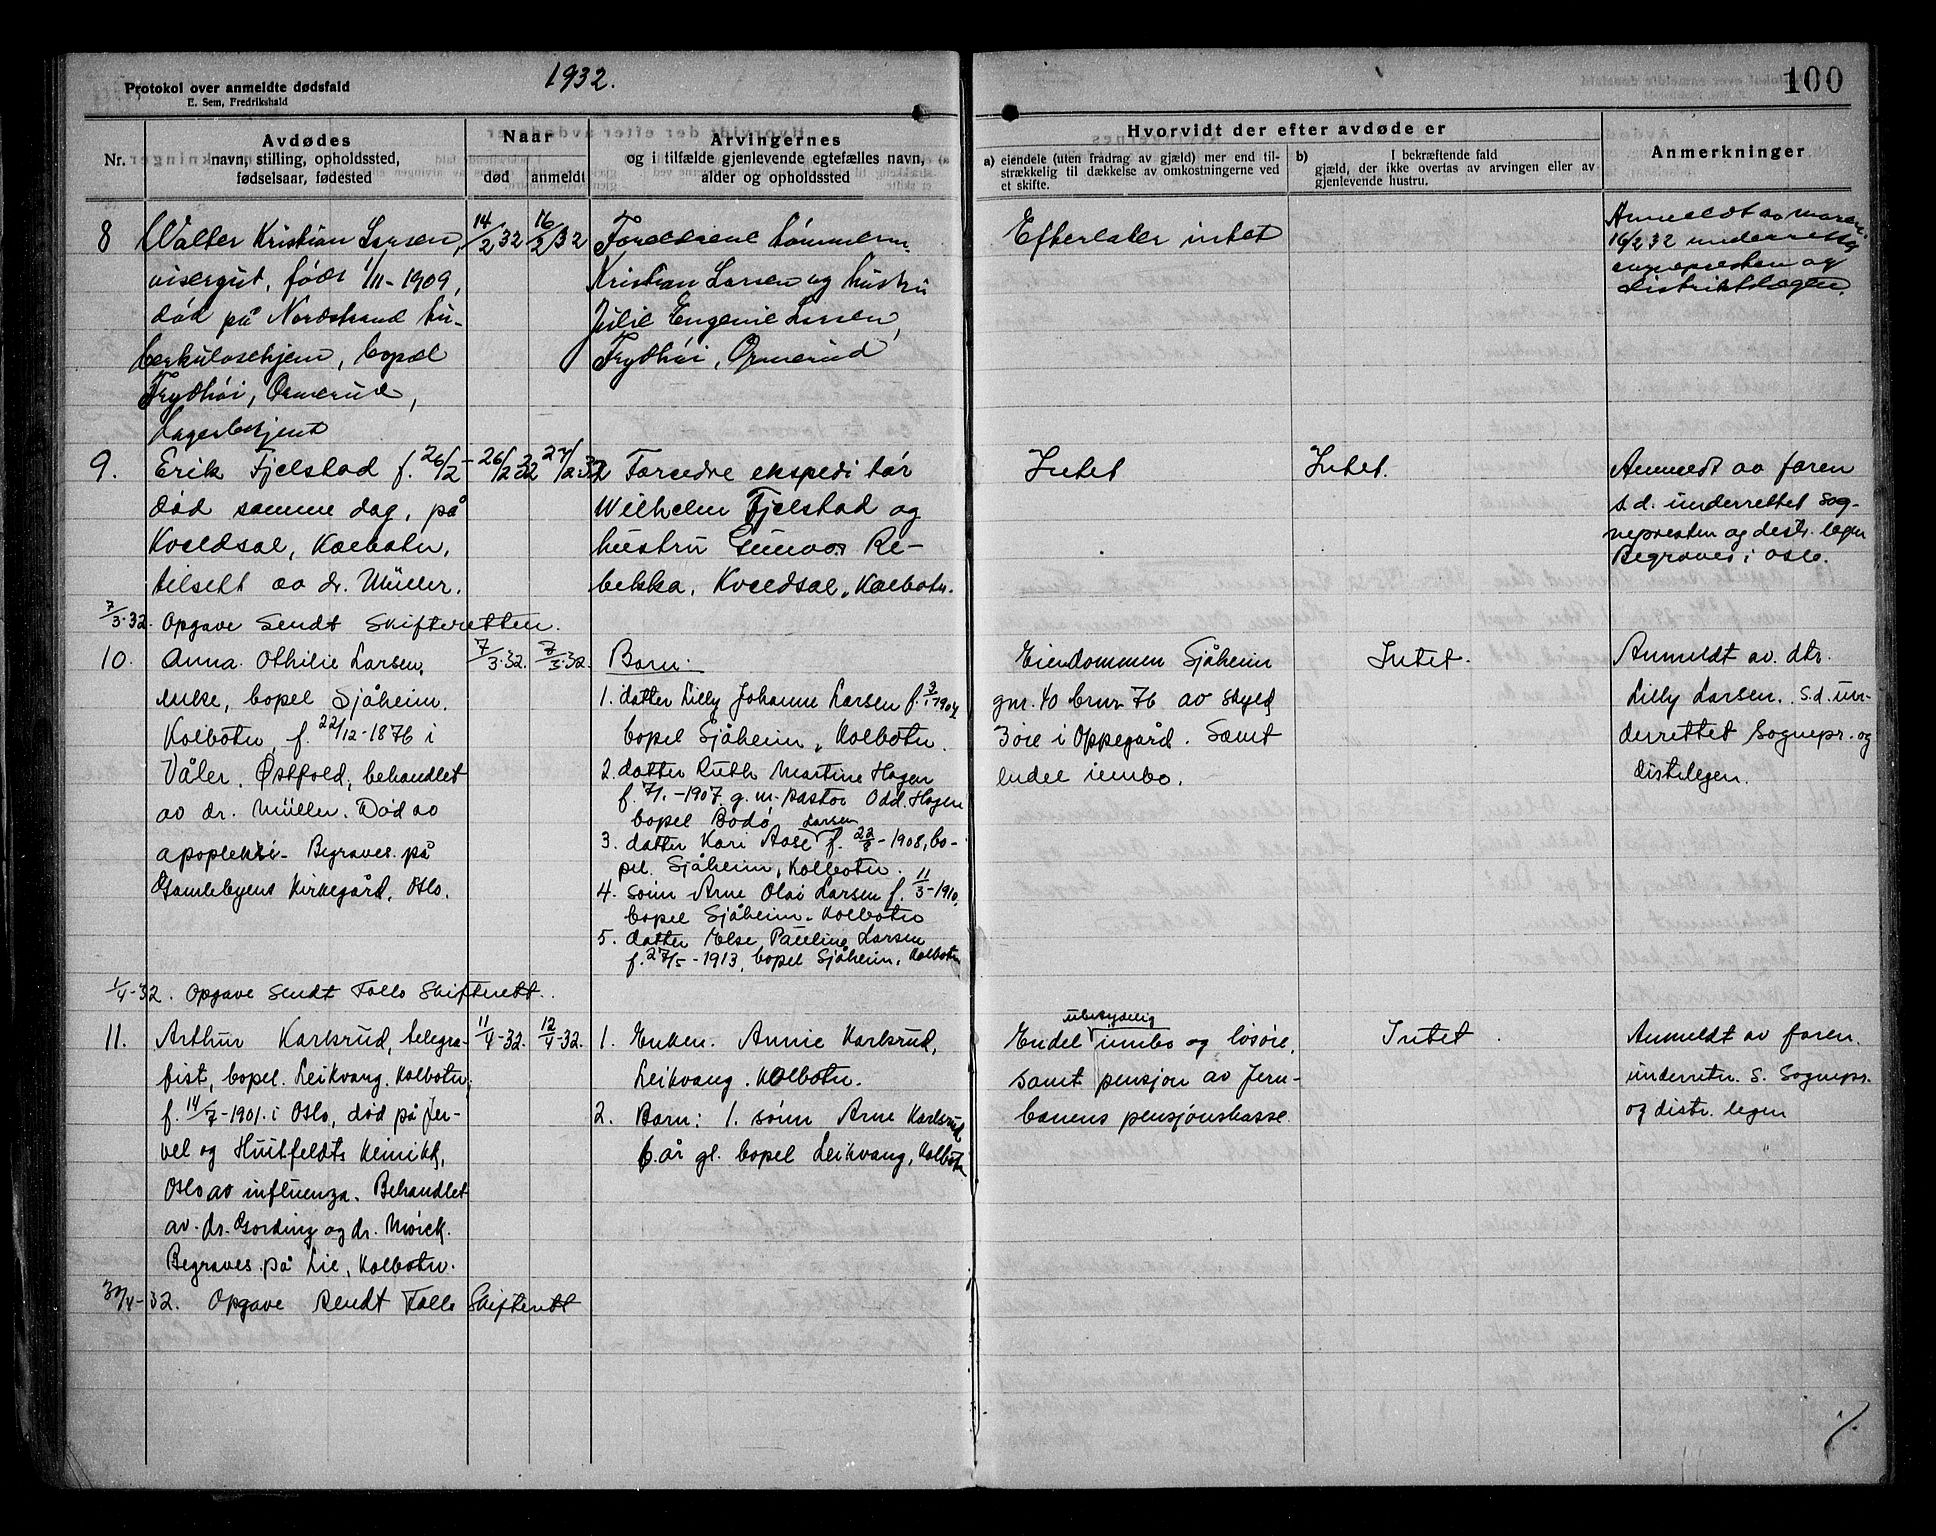 Protokol over anmeldte dødsfald
E. Sem, Fredrikshald
1932.
100
Nr.
Avdødes
navn, stilling, opholdssted,
fødselsaar, fødested
Naar
død
anmeldt
Arvingernes
og i tilfælde gjenlevende egtefælles navn,
alder og opholdssted
Hvorvidt der efter avdøde er
a) eiendele (uten fradrag av gjæld) mer end til-
strækkelig til dækkelse av omkostningerne ved
et skifte.
b) I bekræftende fald
gjæld, der ikke overtas av arvingen eller av
gjenlevende hustru.
Anmerkninger
8
Walter Kristian Larsen,
visergut, født 1/11-1909,
død på Nordstrand tu-
berkulosehjem, bopæl
Frydhøi, Ormerud,
Lagerbetjent
14/2 32
16/2 32
Foreldrene tømmerm.
Kristian Larsen og hustru
Julie Eugenie Larsen,
Frydhøi, Ormerud
Efterlater intet
Anmeldt av moren.
16/2 32 underrettet
sognepresten og
distriktslægen.
9.
Erik Fjelstad f. 26/2-
død samme dag, på
Kveldsol, Kolbotn,
tilsett av dr. Müller.
26/2 32
27/2.32
Forædre ekspeditør
Wilhelm Fjelstad og
hustru Gunvor Re-
bekka, Kveldsol, Kolbotn.
Intet
Intet.
Anmeldt av faren
s.d. underrettet sog-
nepresten og distr. legen
Begraves i Oslo.
7/3-32. Opgave sendt Skifteretten.
10.
Anna Othilie Larsen,
enke, bopel Sjåheim,
Kolbotn, f. 22/12-1876 i
Våler, Østfold, behandlet
av dr. Müller. Død av
apoplekxi- Begraves på
Gamlebyens Kirkegård, Oslo.
7/3.32.
7/3.32.
Barn:
1. datter Lilly Johanne Larsen f. 3/1-1904
bopel Sjåheim, Kolbotn.
2. datter Ruth Martine Hagen
f. 7/1-1907. g. m. pastor Odd. Hagen
bopel Bodø
3. datter Kari Aase Larsen f. 22/8-1908, bo-
pel. Sjåheim, Kolbotn.
4. sønn Arne Olai Larsen f. 11/3-1910,
bopel Sjåheim, Kolbotn
5. datter Else Pauline Larsen
f. 27/5-1913, bopel Sjåheim, Kolbotn
Eiendommen Sjåheim
gnr. 40 bnr. 76 av skyld
3 øre i Oppegård. Samt
endel innbo.
Intet.
Anmeldt av. dtr.
Lilly Larsen. S.d. un-
derrettet Sognepr. og
distr.legen.
1/4-32. Opgave sendt Follo Skifterett.
11.
Arthur Karlsrud, telegra-
fist, bopel. Leikvang. Kolbotn,
f. 14/7-1901. i Oslo, død på Jer-
vel og Huitfeldts Klinikk,
Oslo av influenza. Behandlet
av. dr. Gording og dr. Mørck.
Begraves på Lie, Kolbotn.
11/4-32.
12/4-32.
1. Enken. Annie Karlsrud,
Leikvang. Kolbotn.
2. Barn: 1. sønn Arne Karlsrud
6 år gl. bopel Leikvang, Kolbotn
Endel ubetydelig innbo og løsøre,
samt pensjon av Jern-
banens pensjonskasse.
Intet.
Anmeldt av faren.
underretn. S. Sognepr.
og distr. legen
30/4-32. Opgave sendt Follo Skifterett